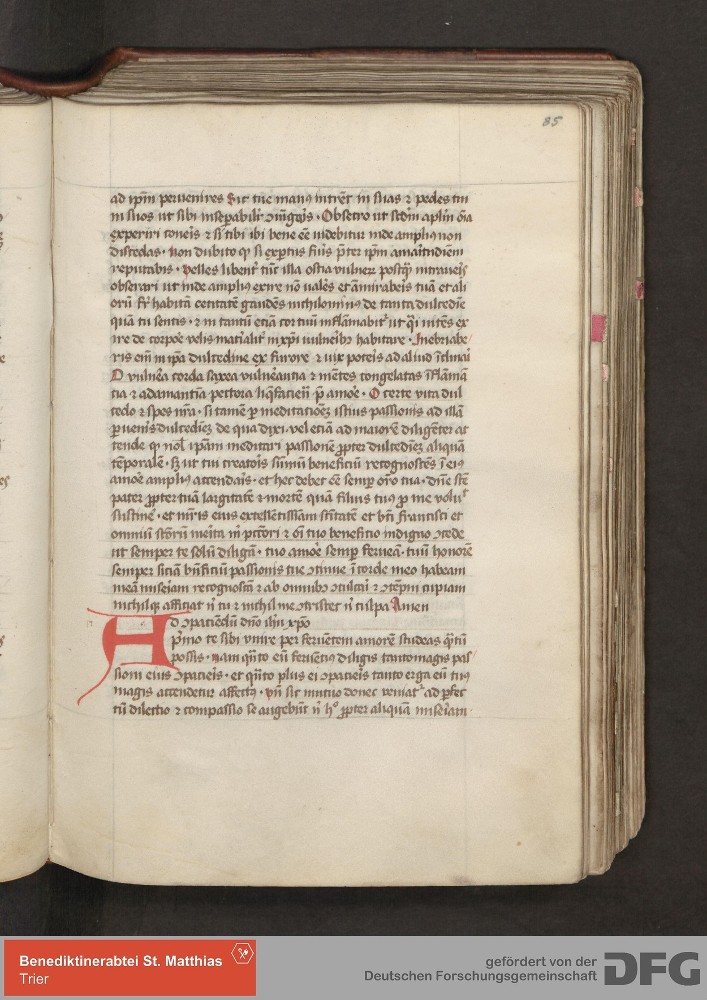 85
ad ip̄m pervenires Sic tue manꝰ intrēt in suas ⁊ pedes tui
in suos ut sibi inseꝑabilit̄ ꝯiūgaris · Obsecro ut scd̄m apl̄m oīa
experiri coneris ⁊ si tibi ibi bene eē videbitur inde ampliꝰ non
discedas · non dubito ꝙ si exꝑtus fūis p̄ter ip̄m amaritudinem
reputabis · velles libent̄ tūc illa ostia vulneꝝ postqͣ̄ intraueris
obserari ut inde ampliꝰ exire nō uales et
orū habitā gaudēs nichilominꝰ de tanta dulcedīe
quā tu sentis · ⁊ in tantū etiā cor tuū inflāmabit᷑ ut
ire de corpore velis in xp̄i vulneribꝫ habitare · Inebriabe
ris eni in ip̄a dulcedine ex furore ⁊ vix poteris ad aliud īclinari
O vulnera corda saxea vulnerantia ⁊ mētes congelatas īflamā
tia ⁊ adamantīa pectora liq̄facien̄ p̄ amore · O certe vita dul
cedo ⁊ spes nr̄a · si tamē ꝑ meditacionē istius passionis ad illā
ꝑueniri dulcedinē de qua dixi · vel etiā ad maiorē diligēter at
tende ꝙ nolī ip̄am meditari passionē ꝓpter dulcedinē aliquā
tēporalē · sꝫ ut tui creatoris sūmū beneficiū recognoscēs ī eiꝰ
amore ampliꝰ accendaris · et hec debet eē semꝑ oro tua · dn̄e scē
pater ꝓpter tuā largitatē ⁊ mortē quā filius tuꝰ ꝑ me voluit
sustinē · et mr̄is eius excellētissīam sc̄itatē et bt̄i francisci et
omniū sc̄orū merita m̄ pctōri ⁊ oī tuo beneficio indigno ꝯcede
ut semper te solū diligā · tuo amore semꝑ ferueā · tuū honorē
semper sitiā bn̄ficiū passionis tue ꝯtinue ī corde meo habeam
meā miseriam recognoscā ⁊ ab omnibꝫ ꝯculcari ⁊ ꝯtēpni cupiam
nichilqꝫ afficiat n̄ tu ⁊ nichil me ꝯtristet n̄ culpa Amen
Ad ꝯpaciēdū dn̄o ih̄u xp̄o
p̄mo te sibi vnire per feruētem amorē studeas qͣ̄tū
possis · nam qͣ̄to eū feruētiꝰ diligis tanto magis pas
sioni eius ꝯpacieris · et qͣ̄to plus ei ꝯpacieris tanto erga eū tuꝰ
magis accendetur affectꝰ · vn̄ sic mutuo donec veniat᷑ ad ꝑfec
tū dilectio ⁊ compassio se augebūt n̄ hͦ ꝓpter aliquā miseriam
Benediktinerabtei St. Matthias
Trier
gefördert von der
Deutschen Forschungsgemeinschaft
DFG